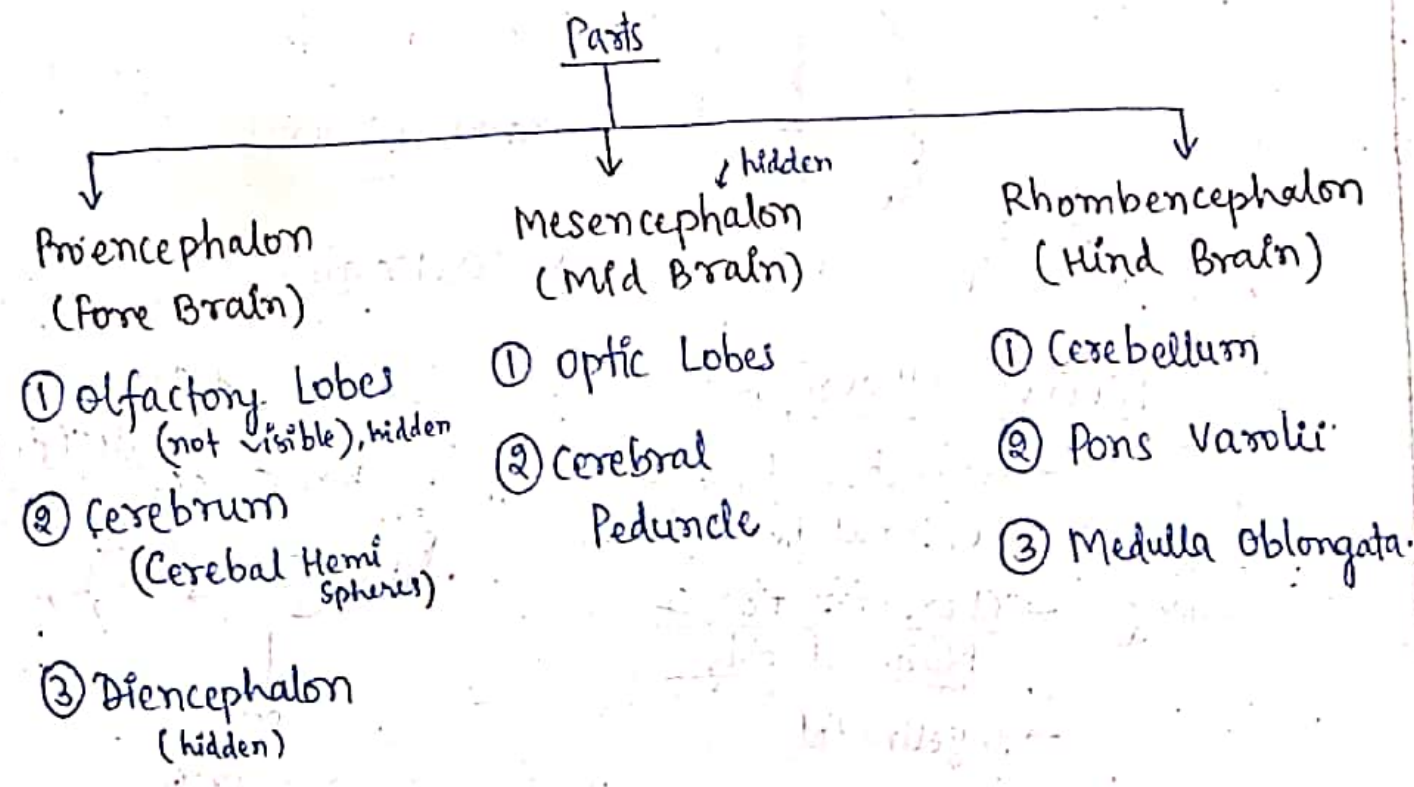 Parts
Proencephalon
(Fore Brain)
① Olfactory Lobes
(not visible), hidden
② Cerebrum
(Cerebal Hemi
Spheres)
③ Diencephalon
(hidden)
hidden
Mesencephalon
(Mid Brain)
① Optic Lobes
② Cerebral
Peduncle
Rhombencephalon
(Hind Brain)
① Cerebellum
② Pons Varolii
③ Medulla Oblongata.